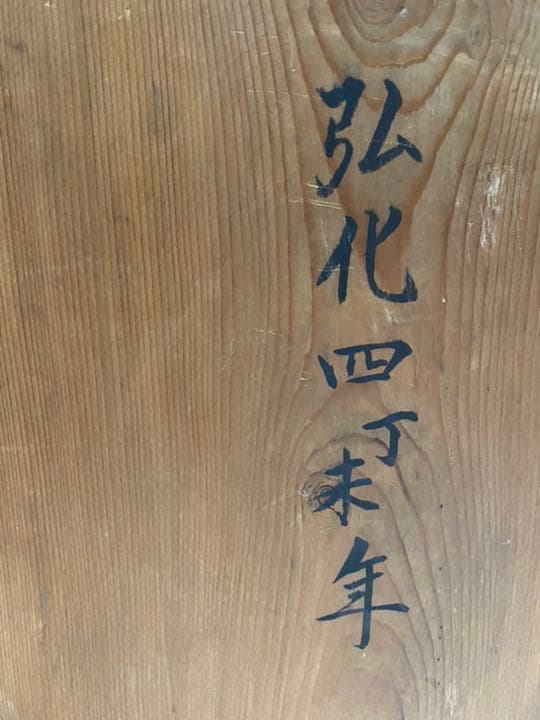 弘化四丁未年